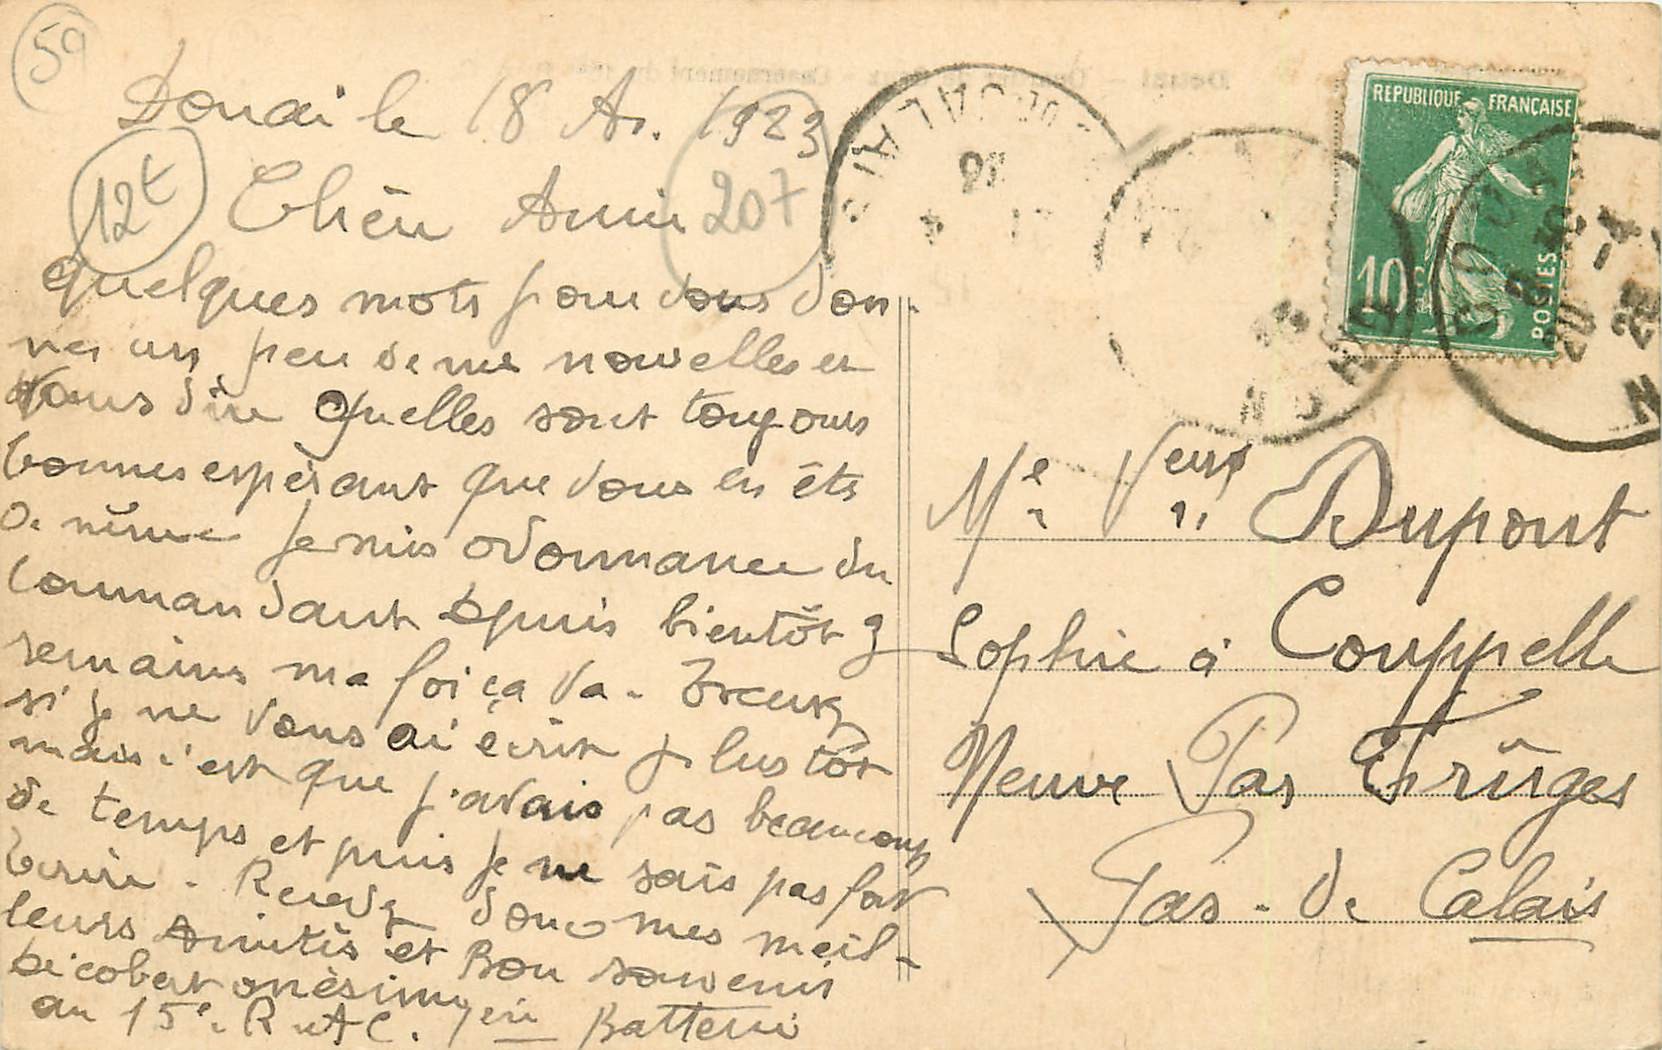 59
Douai le 18 Av. 1923
12t
207
Chèu Amie
quelques mots pour vous don-
ner un peu de me nouvelles et
vous dire quelles sont toujours
bonnes espèrant que vous en éts
de même Je suis odonnance du
Commandant depuis bientôt 3
semaines ma foi ça va. Excusz
si je ne vous ai écrit plus tôt
mais c'est que j'avais pas beaucoup
de temps et puis je ne sais pas fort
écrire. Recevez donc mes meil-
leurs Amitiés et Bon souvenir
Décobert onèsime
au 15e R.A.C. 7eri Batterie
REPUBLIQUE FRANÇAISE
10c
POSTES
DOUAI
NORD
PAS-DE-CALAIS
Me Veuve Dupont
Sophie à Couppelle
Neuve Par Frûges
Pas-de Calais